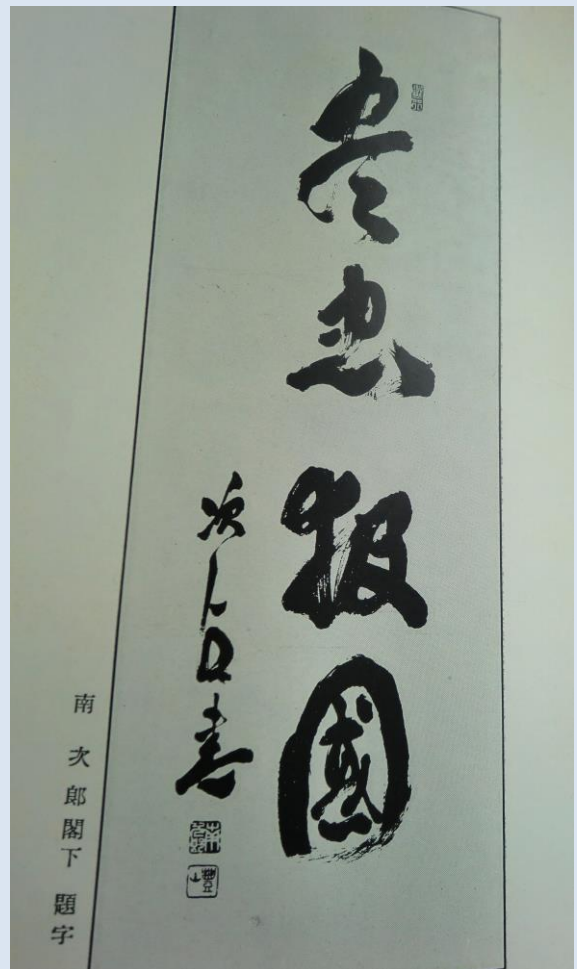 尽忠报國
次郎書
南次郎閣下 題字